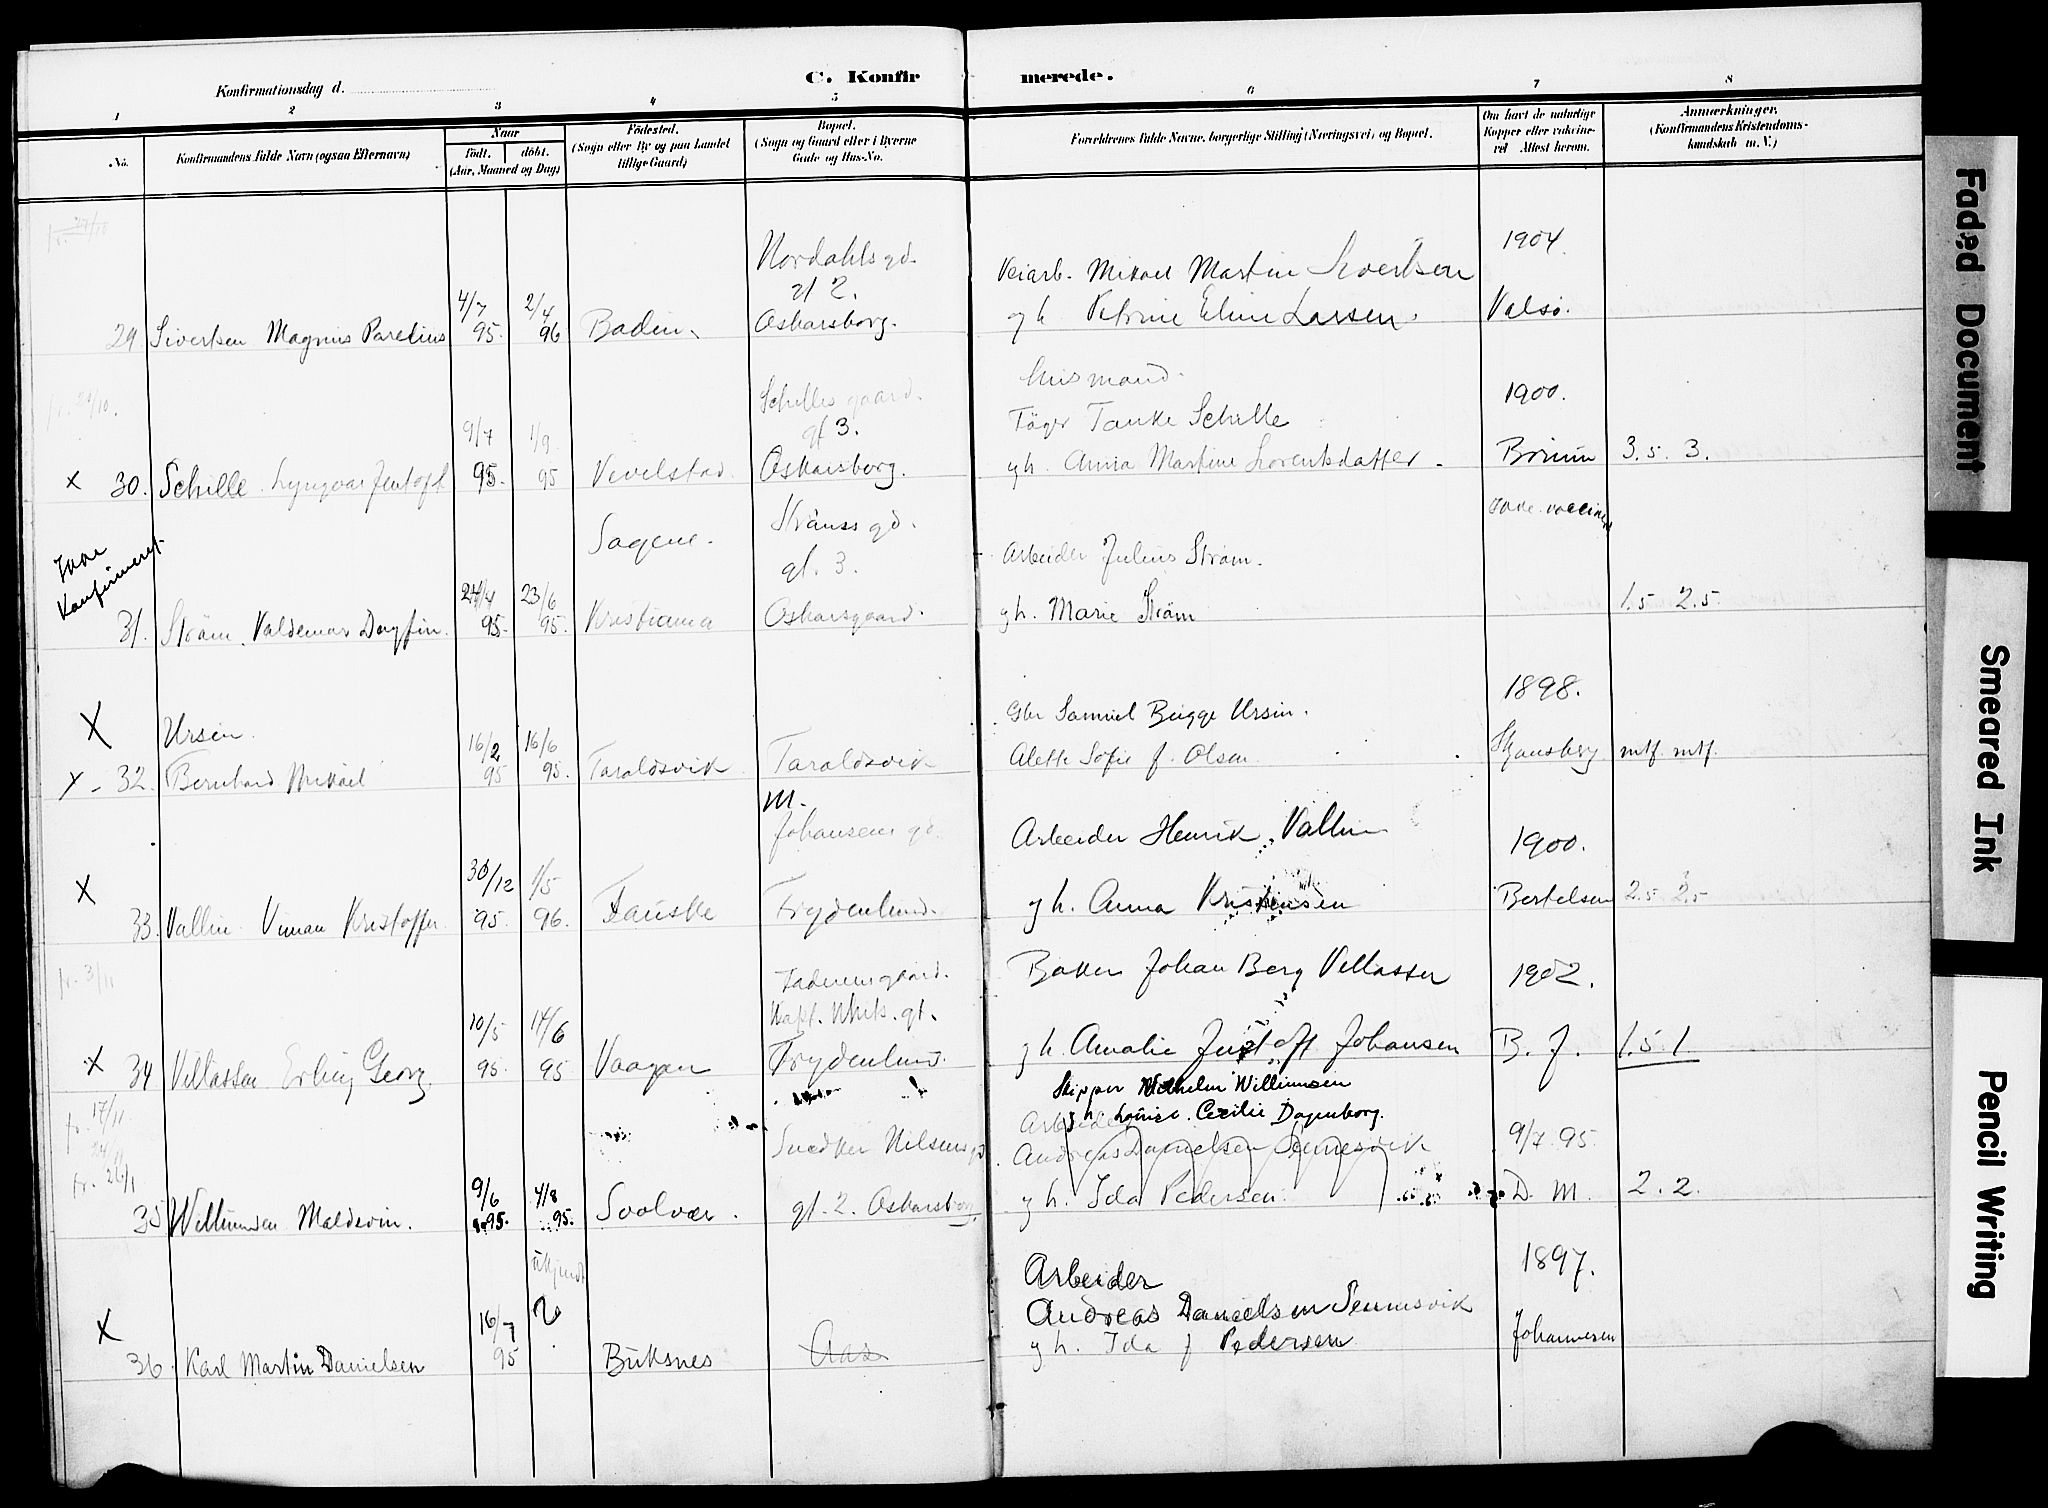 C. Konfirmerede.
Konfirmationsdag d.
1 2 3 4 5 6 7 8
No.
Konfirmandens fulde Navn (ogsaa Efternavn)
Naar
födt. döbt.
(Aar, Maaned og Dag)
Födested.
(Sogn eller By og paa Landet
tillige Gaard)
Bopæl.
(Sogn og Gaard eller i Byerne
Gade og Hus-No.
Forældrenes fulde Navne, borgerlige Stilling (Næringsvei) og Bopæl.
Om havt de naturlige
Kopper eller vakcine-
ret Attest herom.
Anmærkninger.
(Konfirmandens Kristendoms-
kundskab m. V.)
Nordahls gd.
gt 2.
Veiarb. Mikael Martin Sivertsen
1904.
29 Sivertsen Magnus Parelius 4/7 95. 2/4 96 Bodin Oskarsborg. g h. Petrine Eline Larsen. Valsö.
Schilles gaard.
gt 3.
Husmand.
Töger Tanke Schille
1900.
x 30. Schille Lyngvar Jentoft 9/7 95. 1/9 95 Vevelstad Oskarsborg. g h. Anna Martine Lorentsdatter. 3.5. 3.
Ikke
Konfirmeret
Sagene.
Ströms gd.
gt. 3.
Arbeider Julius Ström.
Ikke vaccinert
31. Ström, Valdemar Dagfin. 24/4 95. 23/6 95. Kristiania Oskarsgaard. g h. Marie Ström 1.5 2.5
X
Ursin
Gbr Samuel Bugge Ursin.
1898.
x - 32. Bernhard Mikael 16/2 95 16/6 95. Taraldsvik Taraldsvik Aleth Sofie f. Olsen mtf. mtf.
M.
Johansens gd.
Arbeider Henrik Vallin
1900.
X
33. Vallin Kristoffer 30/12 95. 1/5 96. Fauske Frydenlund. g h. Anna Kristensen Bertelsen 2.5 2.5
fr. 3/11
gt.
Baker Johan Berg Vellassen
1902.
x 34 Vellassen Erling Georg 10/5 95. 14/6 95 Vaagan Frydenlund. g h. Amalie Jentoft Johansen B. J. 1.5 1
Skipper Vilhelm Williumsen
g h. Lovise Cecilie Dagenborg.
fr. 17/11
24/11
fr. 26/1
Snedker Nilsens gd
Arbeider
Andreas Danielsen Sennesvik
9/7 95
35 Williumsen Maldevin. 9/6 95. 4/8 95. Svolvær. gt. 2. Oskarsborg. g h. Ida Pedersen D. M. 2. 2.
ukjendt
?
Arbeider
Andreas Danielsen Sennesvik
1897.
X
36. Karl Martin Danielsen 16/7 95 Buksnes Aas g h. Ida f Pedersen Johannesen
Faded Document
Smeared Ink
Pencil Writing